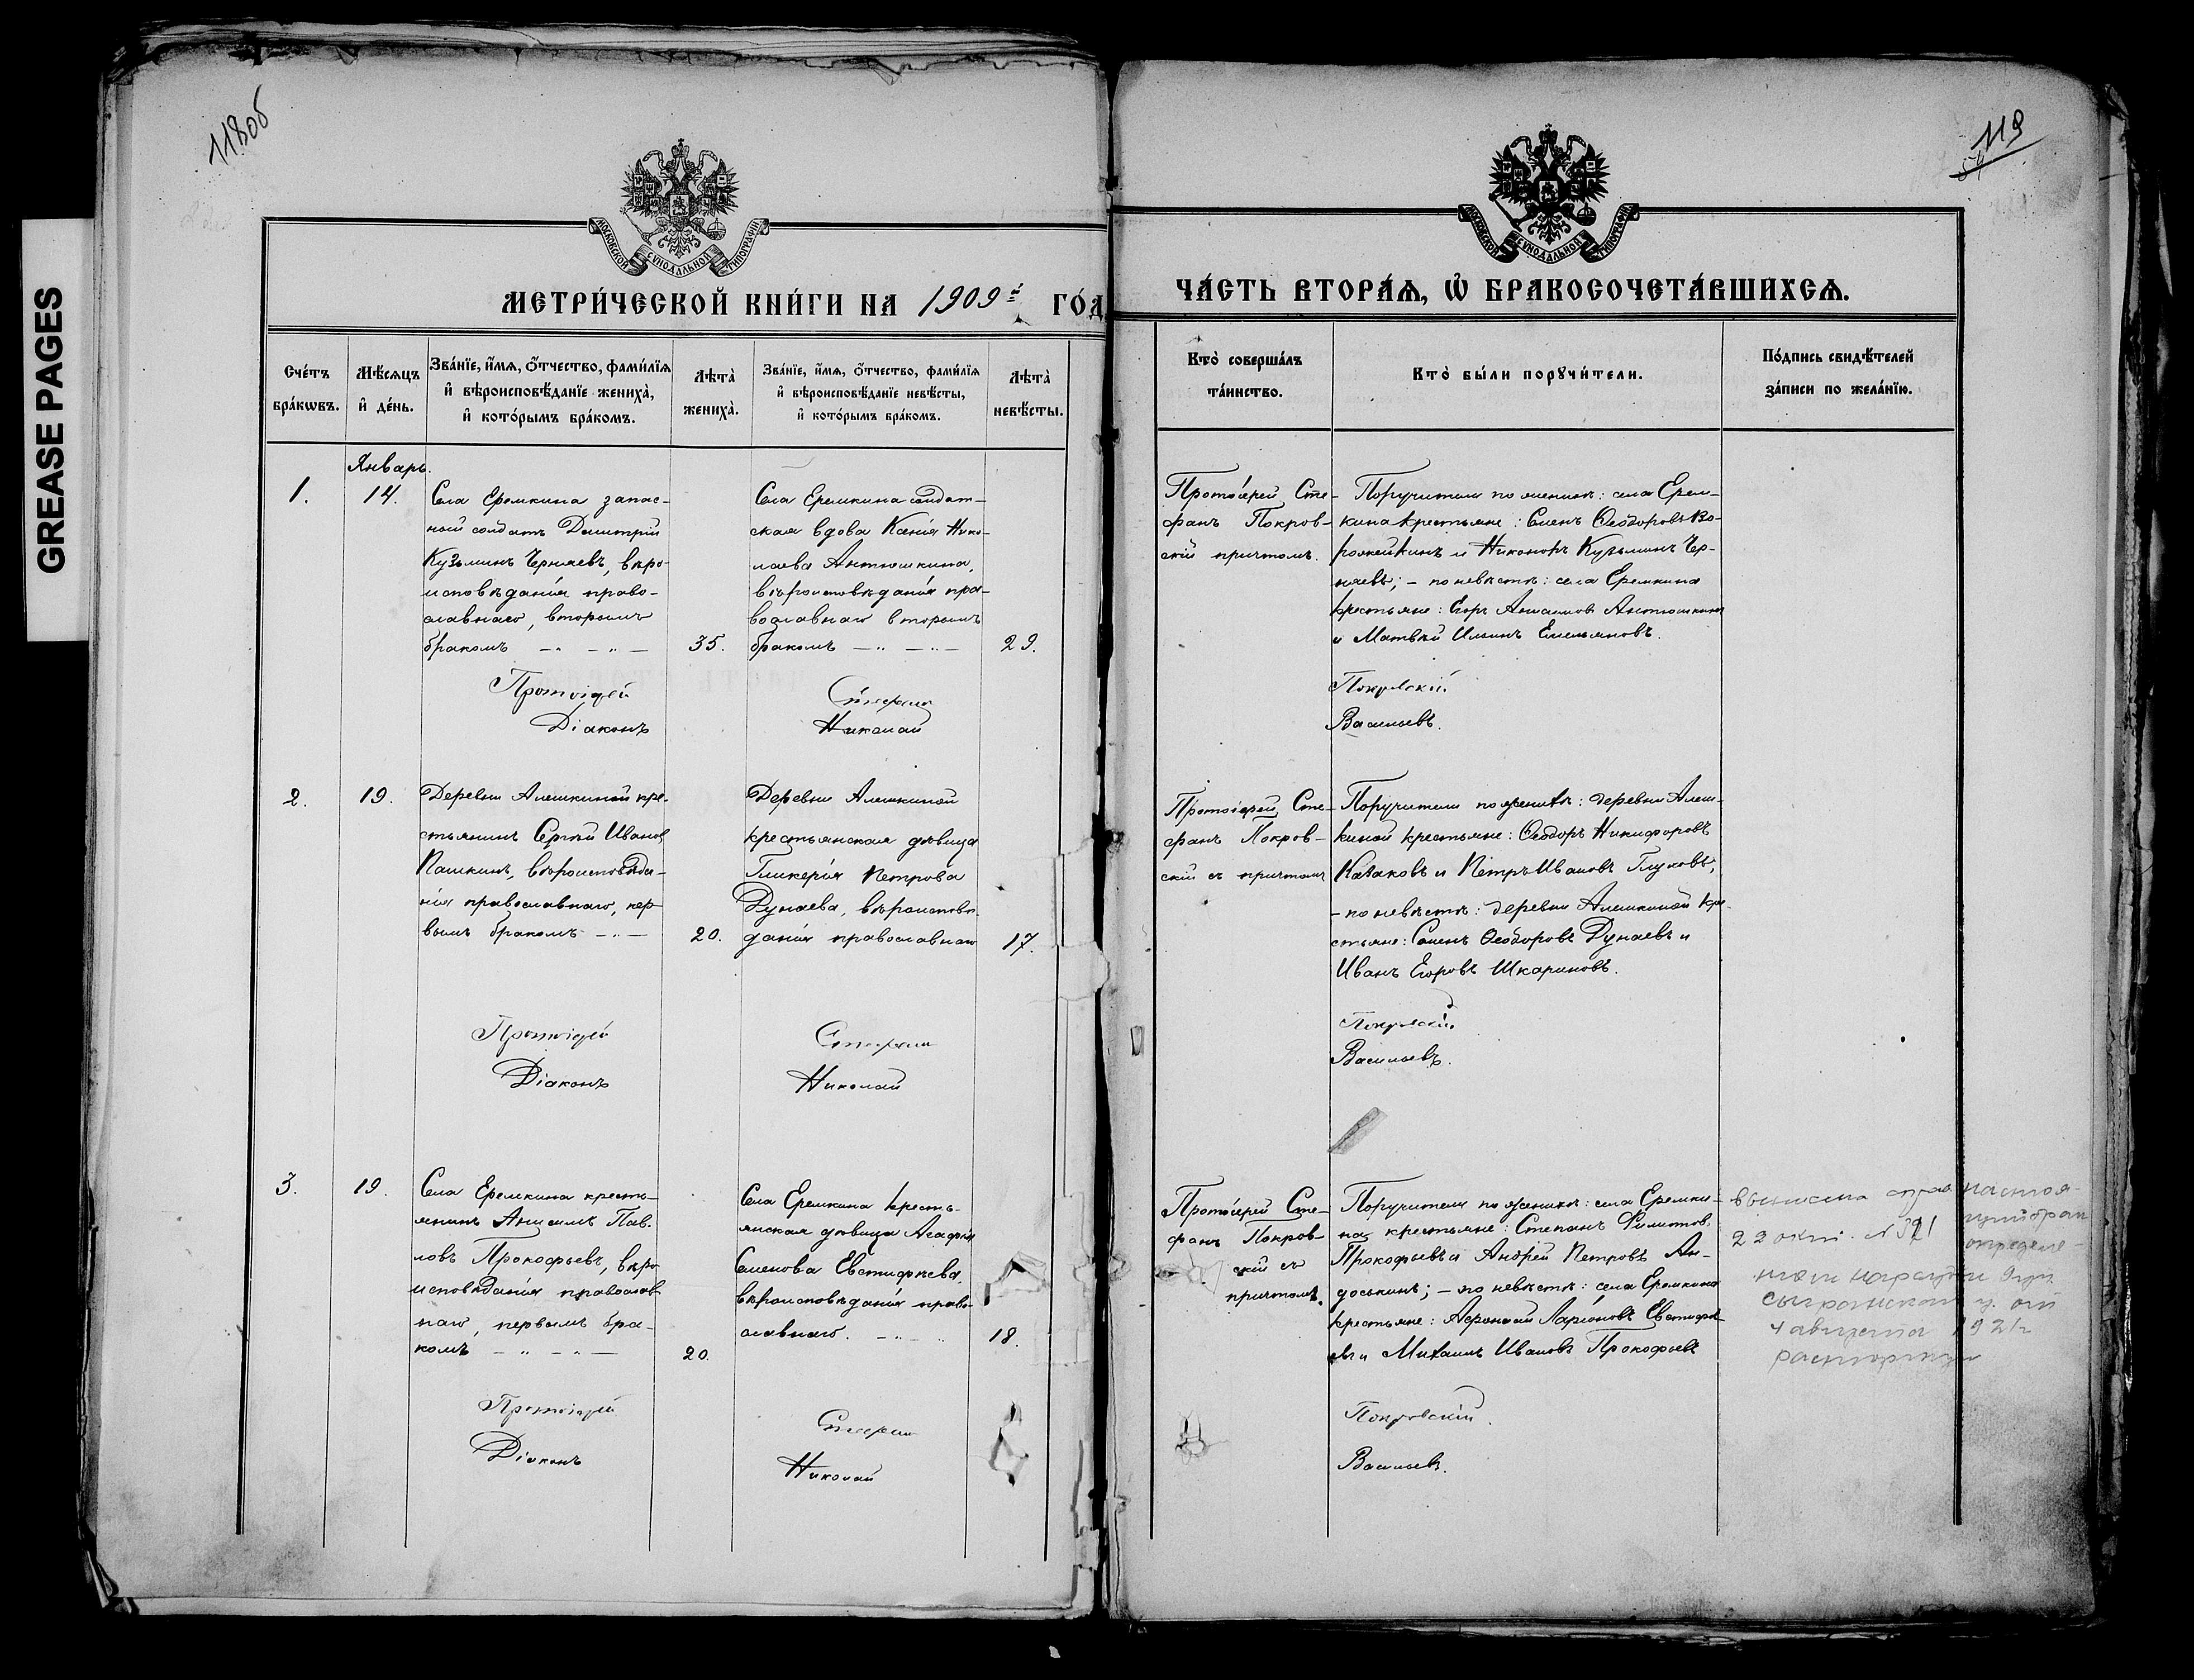 GREASE PAGES
118об
119
МОСКОВСКОЙ СѴНОДАЛЬНОЙ ТИПОГРАФІИ
МЕТРИ́ЧЕСКОЙ КНИ́ГИ НА 1909й ГО́Д
Сче́тъ бра́кѡвъ.
Мѣ́сяцъ и҆ де́нь.
Зва́нїе, и҆́мѧ, о҆́тчество, фами́лїѧ и҆ вѣроисповѣ́данїе жениха̀, и҆ кото́рымъ бра́комъ.
Лѣта̀ жениха̀.
Зва́нїе, и҆́мѧ, о҆́тчество, фами́лїѧ и҆ вѣроисповѣ́данїе невѣ́сты, и҆ кото́рымъ бра́комъ.
Лѣта̀ невѣ́сты.
Январь.
1.
14.
Села Еремкина запас-
ный солдатъ Димитрій
Кузьминъ Черняевъ, вѣро-
исповѣданія право-
славнаго, вторымъ
бракомъ
35.
Села Еремкина солдат-
ская вдова Ксенія Нико-
лаева Антюшкина,
вѣроисповѣданія пра-
вославнаго вторымъ
бракомъ
29.
Протоіерей
Стефанъ
Діаконъ
Николай
2.
19.
Деревни Алешкиной кре-
стьянинъ Сергѣй Ивановъ
Пашкинъ, вѣроисповѣда-
нія православнаго, пер-
вымъ бракомъ
20.
Деревни Алешкиной
крестьянская дѣвица
Гликерія Петрова
Дунаева, вѣроисповѣ-
данія православнаго
17.
Протоіерей
Стефанъ
Діаконъ
Николай
3.
19.
Села Еремкина кресть-
янинъ Анисимъ Пав-
ловъ Прокофьевъ, вѣро-
исповѣданія православ-
наго, первымъ бра-
комъ
20.
Села Еремкина кресть-
янская дѣвица Агафія
Семенова Евстифѣева,
вѣроисповѣданія право-
славнаго.
18.
Протоіерей
Стефанъ
Діаконъ
Николай
МОСКОВСКОЙ СѴНОДАЛЬНОЙ ТИПОГРАФІИ
ЧА́СТЬ ВТОРА́Ѧ, Ѡ҆ БРАКОСОЧЕТА́ВШИХСѦ.
Кто̀ соверша́лъ та́инство.
Кто̀ бы́ли порꙋчи́тели.
По́дпись свидѣ́телей за́писи по жела́нїю.
Протоіерей Сте-
фанъ Покров-
скій причтомъ.
Поручители по женихѣ: села Ерем-
кина крестьяне: Семенъ Ѳеодоровъ Во-
рожейкинъ и Никоноръ Кузьминъ Чер-
няевъ; - по невѣстѣ: села Еремкина
крестьяне: Егоръ Анисимовъ Антюшкинъ
и Матвѣй Ильинъ Емельяновъ.
Покровскій
Васильевъ.
Протоіерей Сте-
фанъ Покров-
скій съ причтомъ
Поручители по женихѣ: деревни Алеш-
киной крестьяне: Ѳеодоръ Никифоровъ
Казаковъ и Петръ Ивановъ Глуховъ;
- по невѣстѣ: деревни Алешкиной кре-
стьяне: Семенъ Ѳеодоровъ Дунаевъ и
Иванъ Егоровъ Шкариновъ.
Покровскій
Васильевъ.
Протоіерей Сте-
фанъ Покров-
скій съ
причтомъ.
Поручители по женихѣ: села Еремки-
на крестьяне: Степанъ Филиповъ
Прокофьевъ и Андрей Петровъ Ан-
доськинъ; - по невѣстѣ: села Еремкина
крестьяне: Афанасій Ларіоновъ Евстифѣ-
евъ и Михаилъ Ивановъ Прокофьевъ
Покровскій.
Васильевъ.
настоя-
22 окт.
определе-
сызранскаго у. от
4 августа 1921г
расторгнут